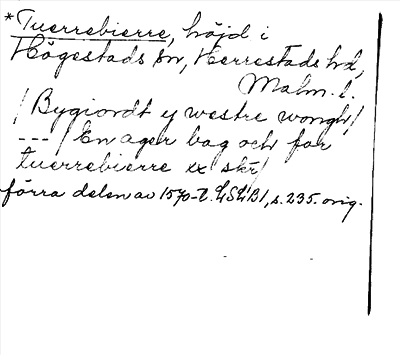 *Tuerrebierre, höjd i
Högestads sn, Herrestads hd,
Malm. l.
/Bygiordt y westre wongh/
---/En ager bag och for
tuerrebierre xx skr/
förra delen av 1570-t. LSLB1, s. 235. orig.